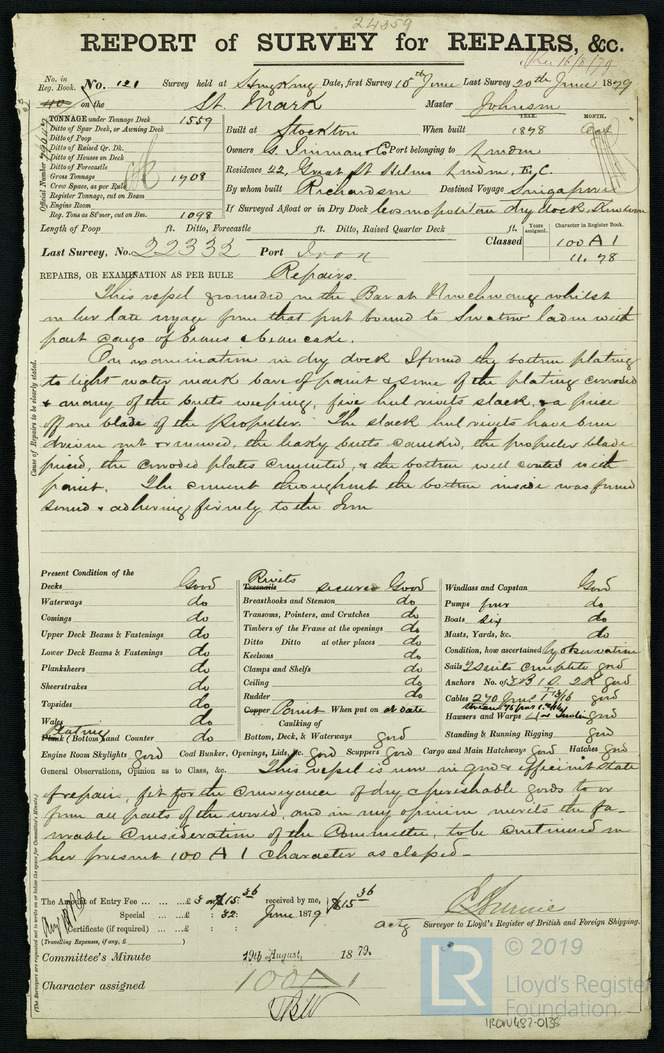 24359
REPORT of SURVEY for REPAIRS, &c.
Rec 16/8/79
No. in Reg. Book. No. 121 Survey held at Hong Kong Date, first Survey 10th June Last Survey 20th June 1879
on the St. Mark Master Johnson
TONNAGE under Tonnage Deck 1559
Ditto of Spar Deck, or Awning Deck
Ditto of Poop
Ditto of Raised Qr. Dk.
Ditto of Houses on Deck
Ditto of Forecastle
Gross Tonnage 1708
Crew Space, as per Rule
Register Tonnage, cut on Beam
Engine Room
Reg. Tons as St'mer, cut on Bm. 1098
Official Number
YEAR. MONTH.
Built at Stockton When built 1878 Oct
Owners G. Inman & Co Port belonging to London
Residence 22, Great St Helens London, E.C.
By whom built Richardson Destined Voyage Singapore
If Surveyed Afloat or in Dry Dock Cosmopolitan dry dock, Kowloon
Length of Poop ft. Ditto, Forecastle ft. Ditto, Raised Quarter Deck ft.
Last Survey, No. 22332 Port Iron
Classed Years assigned. Character in Register Book.
100 A 1
11. 78
REPAIRS, OR EXAMINATION AS PER RULE Repairs.
Cause of Repairs to be clearly stated.
This vessel grounded on the Bar at Newchwang whilst
on her late voyage from that port bound to Swatow laden with
part cargo of beans & bean cake.
On examination in dry dock I found the bottom plating
to light water mark bare of paint & some of the plating corroded
& many of the butts weeping, five hul rivets slack, & a piece
off one blade of the Propeller. The slack hul rivets have been
driven out & renewed, the leaky butts caulked, the propeller blade
pieced, the corroded plates cemented, & the bottom well coated with
paint. The cement throughout the bottom inside was found
sound & adhering firmly to the Iron
Present Condition of the
Decks Good
Waterways do
Comings do
Upper Deck Beams & Fastenings do
Lower Deck Beams & Fastenings do
Planksheers do
Sheerstrakes do
Topsides do
Wales do
Plating
Plank (Bottom) and Counter do
Rivets
Treenails secured Good
Breasthooks and Stemson do
Transoms, Pointers, and Crutches do
Timbers of the Frame at the openings do
Ditto Ditto at other places do
Keelsons do
Clamps and Shelfs do
Ceiling do
Rudder do
Copper Paint When put on at date
Caulking of
Bottom, Deck, & Waterways good
Windlass and Capstan Good
Pumps four do
Boats six do
Masts, Yards, &c. do
Condition, how ascertained by observation
Sails 2 suits complete good
Anchors No. of 3 B 1 S. 2 K good
Cables 270 fms 1 13/16 good
Hawsers and Warps good
Standing & Running Rigging good
Engine Room Skylights good Coal Bunker, Openings, Lids, &c. good Scuppers good Cargo and Main Hatchways good Hatches good
General Observations, Opinion as to Class, &c. This vessel is now in good & efficient state
of repair, fit for the conveyance of dry & perishable goods to or
from all parts of the world, and in my opinion merits the fa-
vorable Consideration of the Committee, to be continued in
her present 100 A 1 character as classed –
(The Surveyors are requested not to write on or below the space for Committee's Minute.)
The Amount of Entry Fee ... ... ... £ 3 or $15.36 received by me, $15.36
Special ... ... £ : 32 : June 1879
Certificate (if required) ... ... £ : :
(Travelling Expenses, if any, £ )
actg Surveyor to Lloyd's Register of British and Foreign Shipping.
Committee's Minute 19th August, 1879.
Character assigned 100 A 1
© 2019
LR Lloyd's Register
Foundation
IRON482-0138